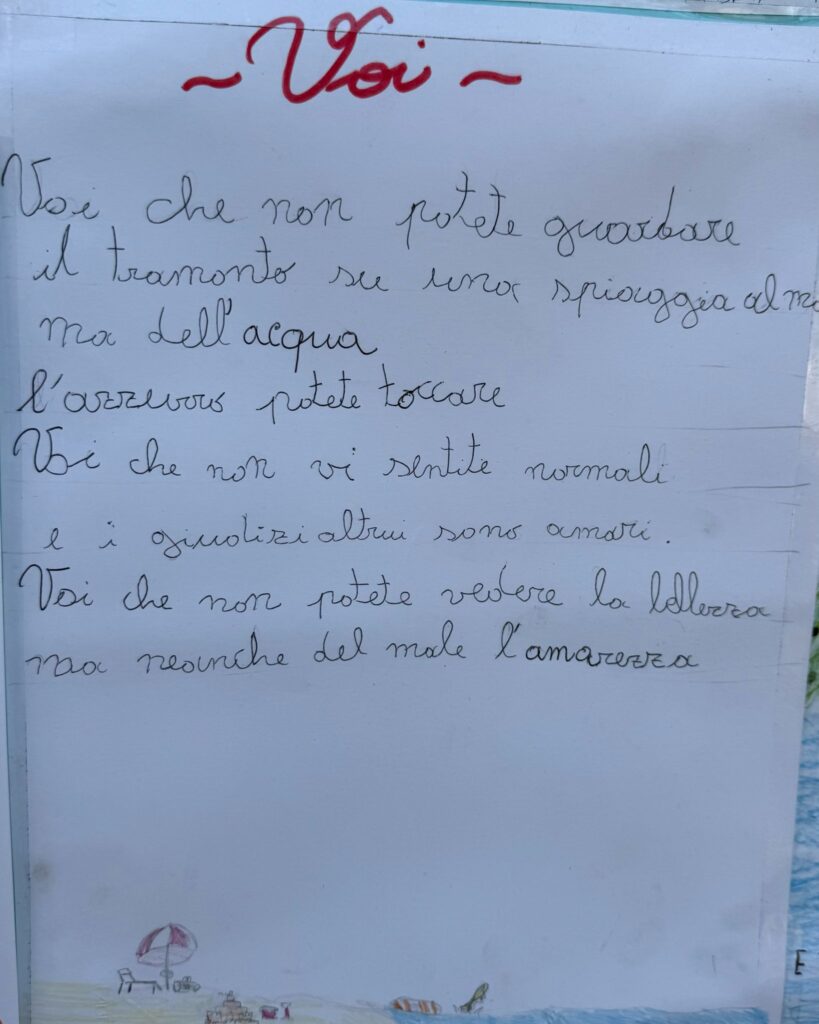 ~ Voi ~
Voi che non potete guardare
il tramonto su una spiaggia al
ma dell'acqua
l'azzurro potete toccare
Voi che non vi sentite normali
e i giudizi altrui sono amari.
Voi che non potete vedere la bellezza
ma neanche del male l'amarezza
E